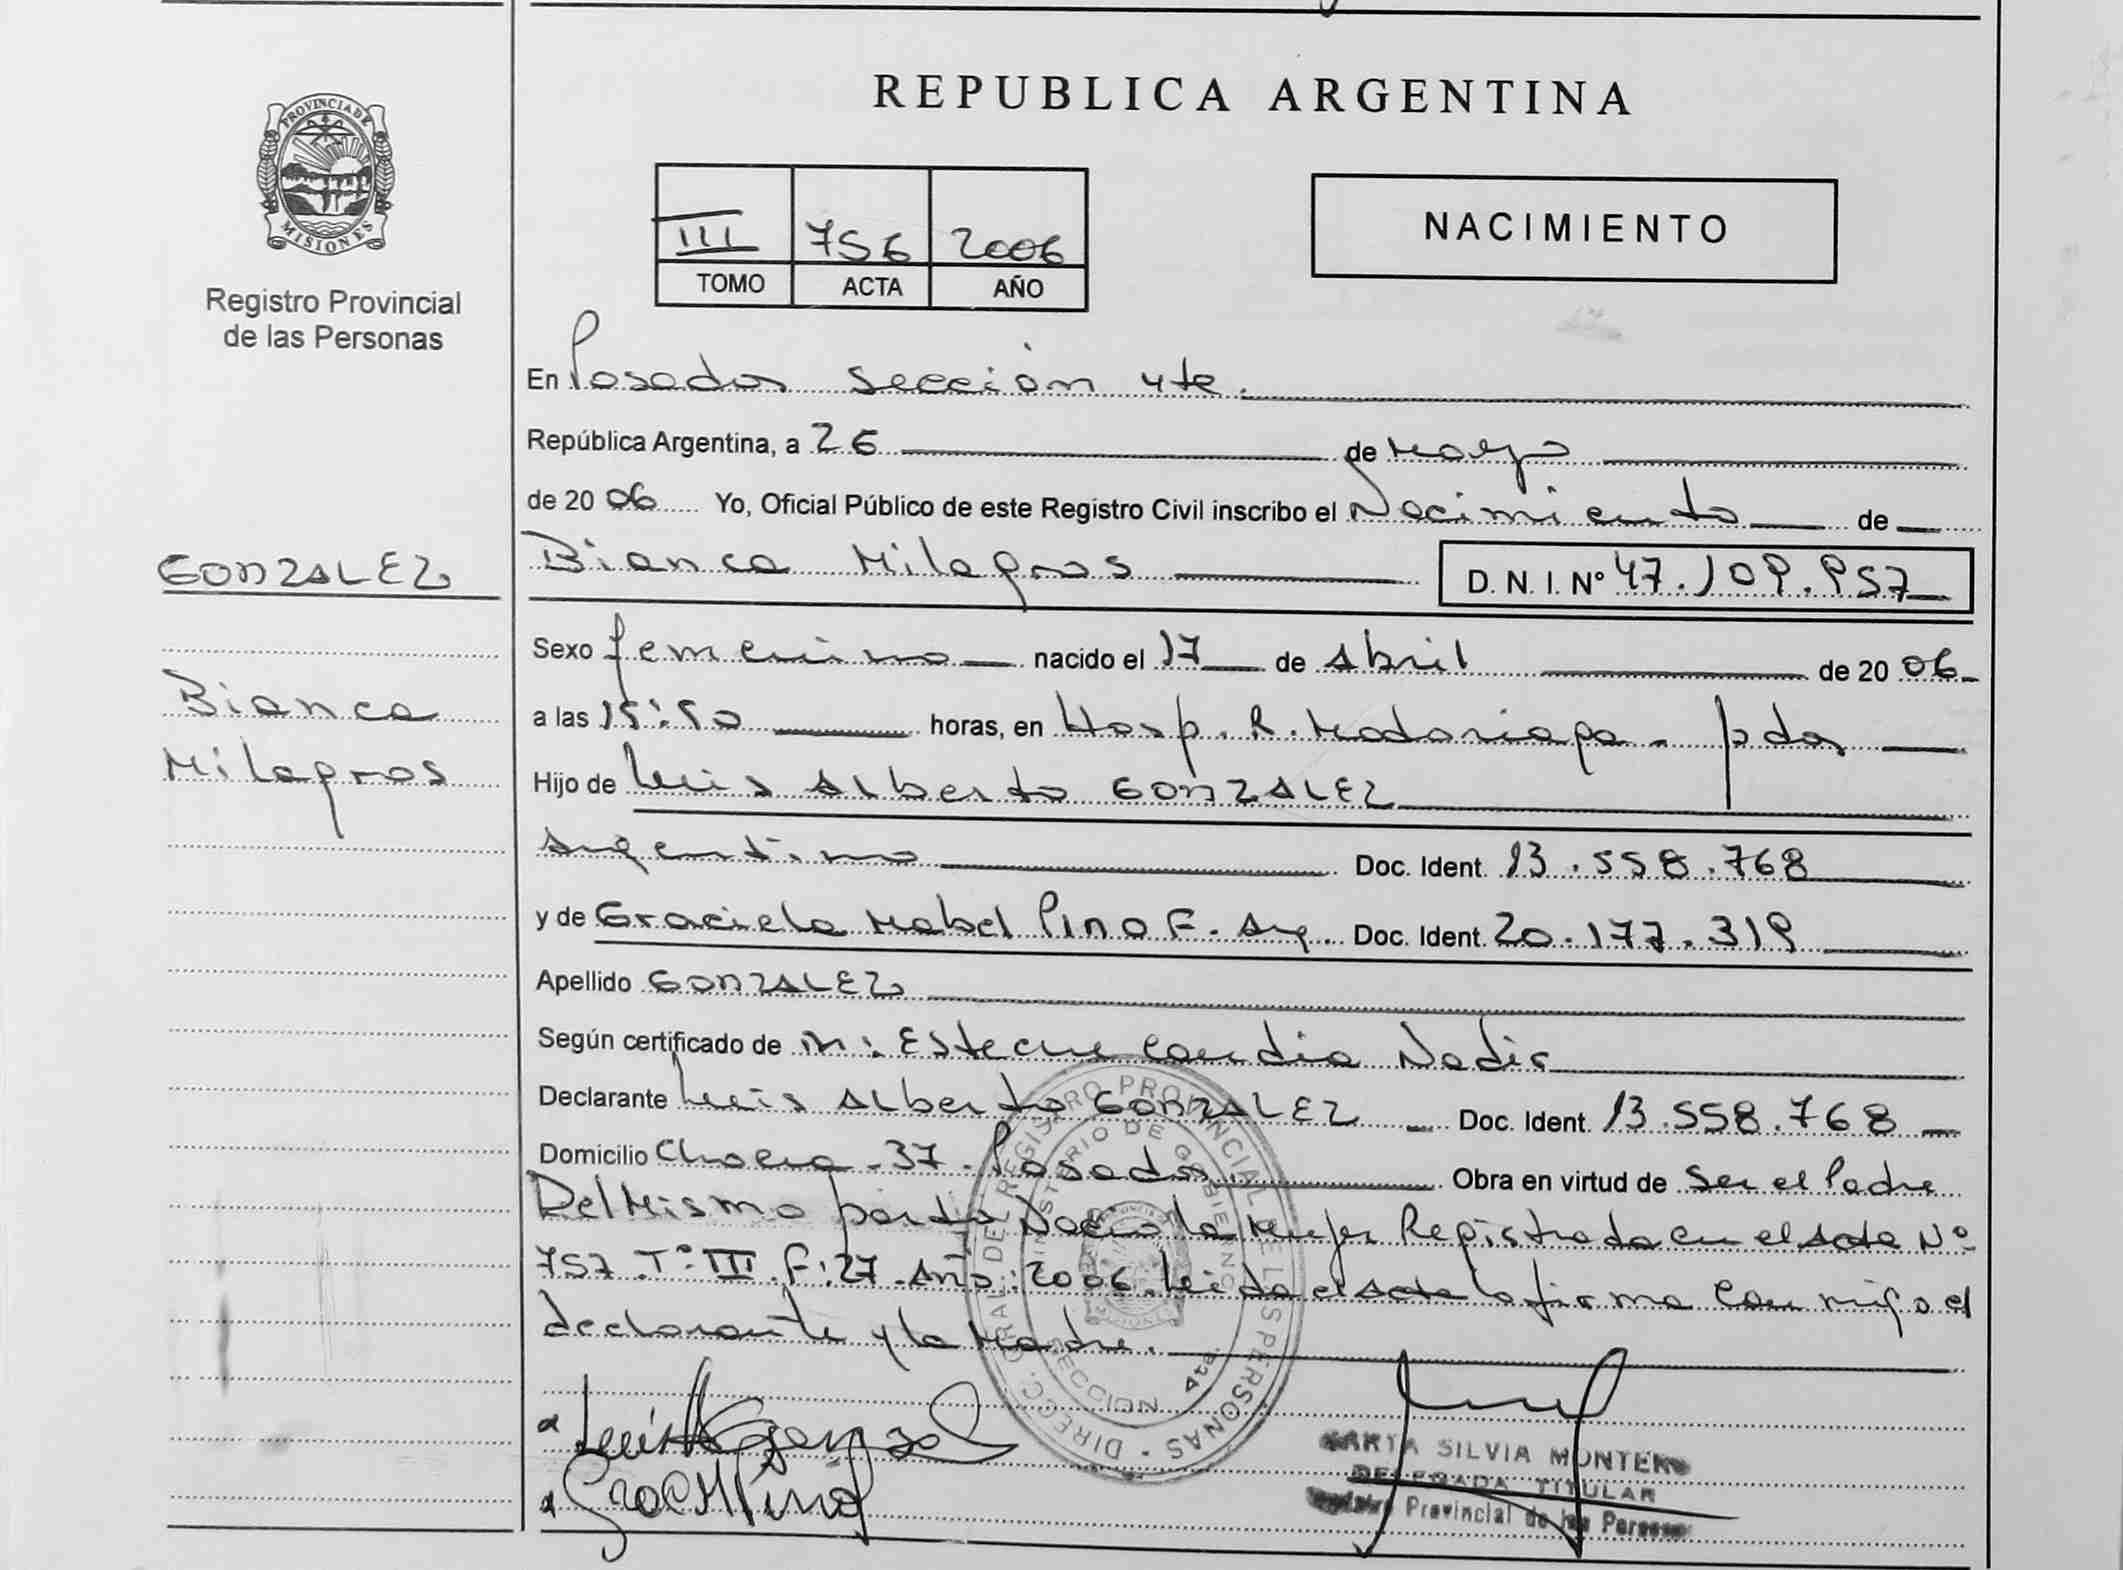 PROVINCIA DE
MISIONES
Registro Provincial
de las Personas
REPUBLICA ARGENTINA
III 756 2006
TOMO ACTA AÑO
NACIMIENTO
En Posadas sección 4te.
República Argentina, a 26 de Mayo
de 2006 Yo, Oficial Público de este Registro Civil inscribo el Nacimiento de
GONZALEZ
Bianca Milagros D. N. I. Nº 47.109.957
Bianca
Milagros
Sexo femenino nacido el 17 de Abril de 2006
a las 15:50 horas, en Hosp. R. Madariaga - pdas
Hijo de Luis Alberto GONZALEZ
Argentino Doc. Ident. 13.558.768
y de Graciela Mabel Pino F. Arg. Doc. Ident. 20.177.319
Apellido GONZALEZ
Según certificado de M: Nadir
Declarante Luis Alberto GONZALEZ Doc. Ident. 13.558.768
Domicilio 37. Posadas Obra en virtud de Ser el Padre
Del Mismo parto Nacio la Mujer Registrada en el Acta Nº
757. Tº III. F: 27 Año: 2006. Leida el Acta la firma con migo el
declarante y la Madre.
DIRECC. GRAL DE REGISTRO PROVINCIAL DE LAS PERSONAS
MINISTERIO DE GOBIERNO
SECCION 4te.
MARTA SILVIA MONTERO
DELEGADA TITULAR
Registro Provincial de las Personas